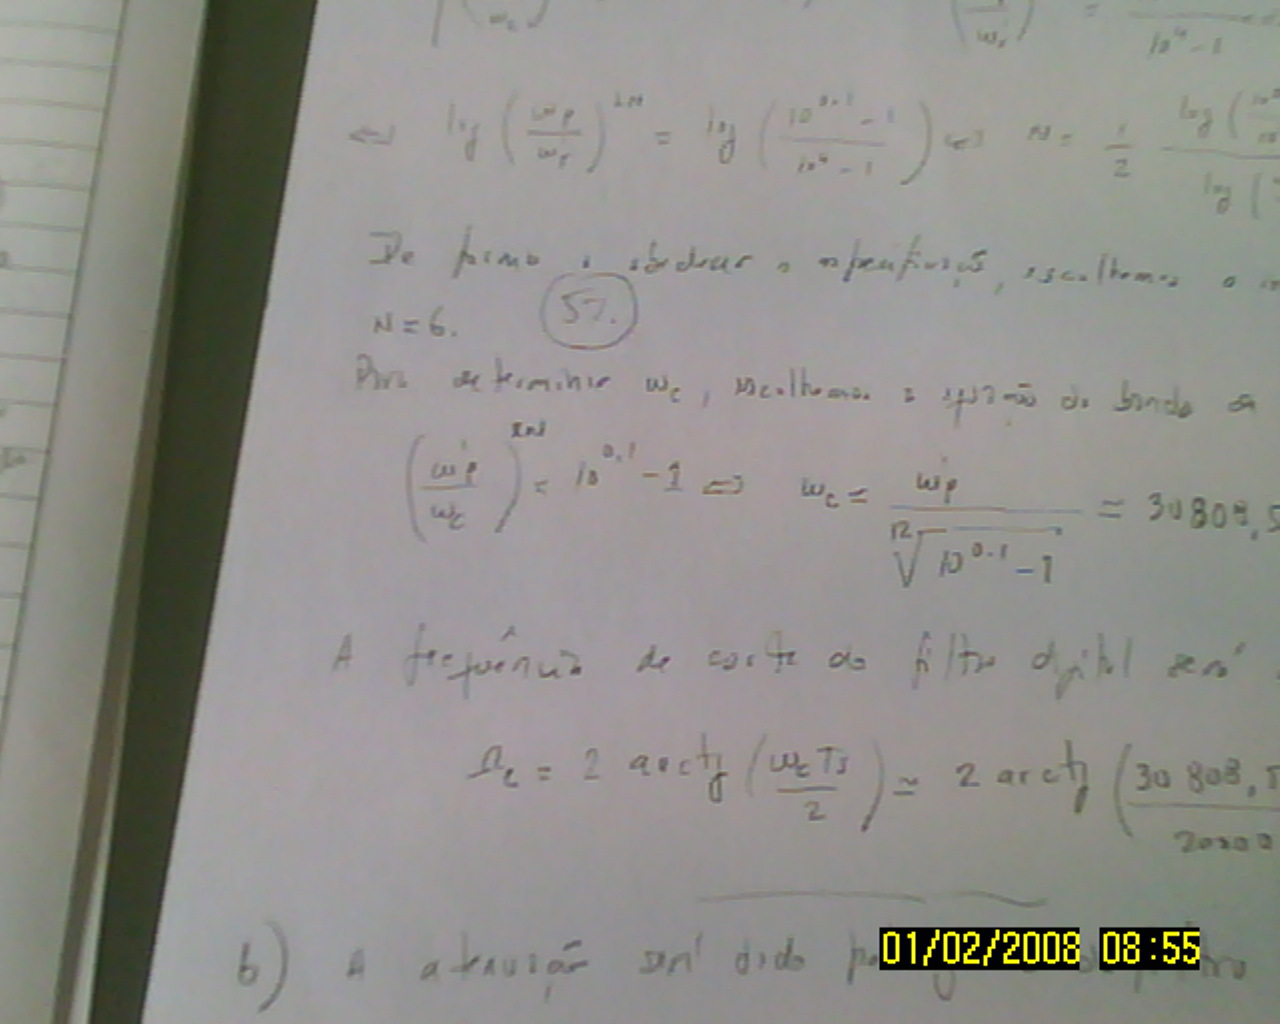 (   / ωc)   (   / ωr) =   / 10⁴ - 1
⇔ log (ω'p / ω'r)^2N = log (10^0.1 - 1 / 10⁴ - 1) ⇔ N = 1/2 log (10^0. / 10 / log (
De forma a obedecer a especificação, escolhemos o
N = 6. 57.
Para determinar ωc, escolhemos a equação da banda de
(ω'p / ωc)^2N = 10^0.1 - 1 ⇔ ωc = ω'p / ¹²√(10^0.1 - 1) ≃ 30808,5
A frequência de corte do filtro digital será
Ωc = 2 arctg (ωc Ts / 2) ≃ 2 arctg (30 808,5 / 20000
b) A atenuação será dada
01/02/2008 08:55